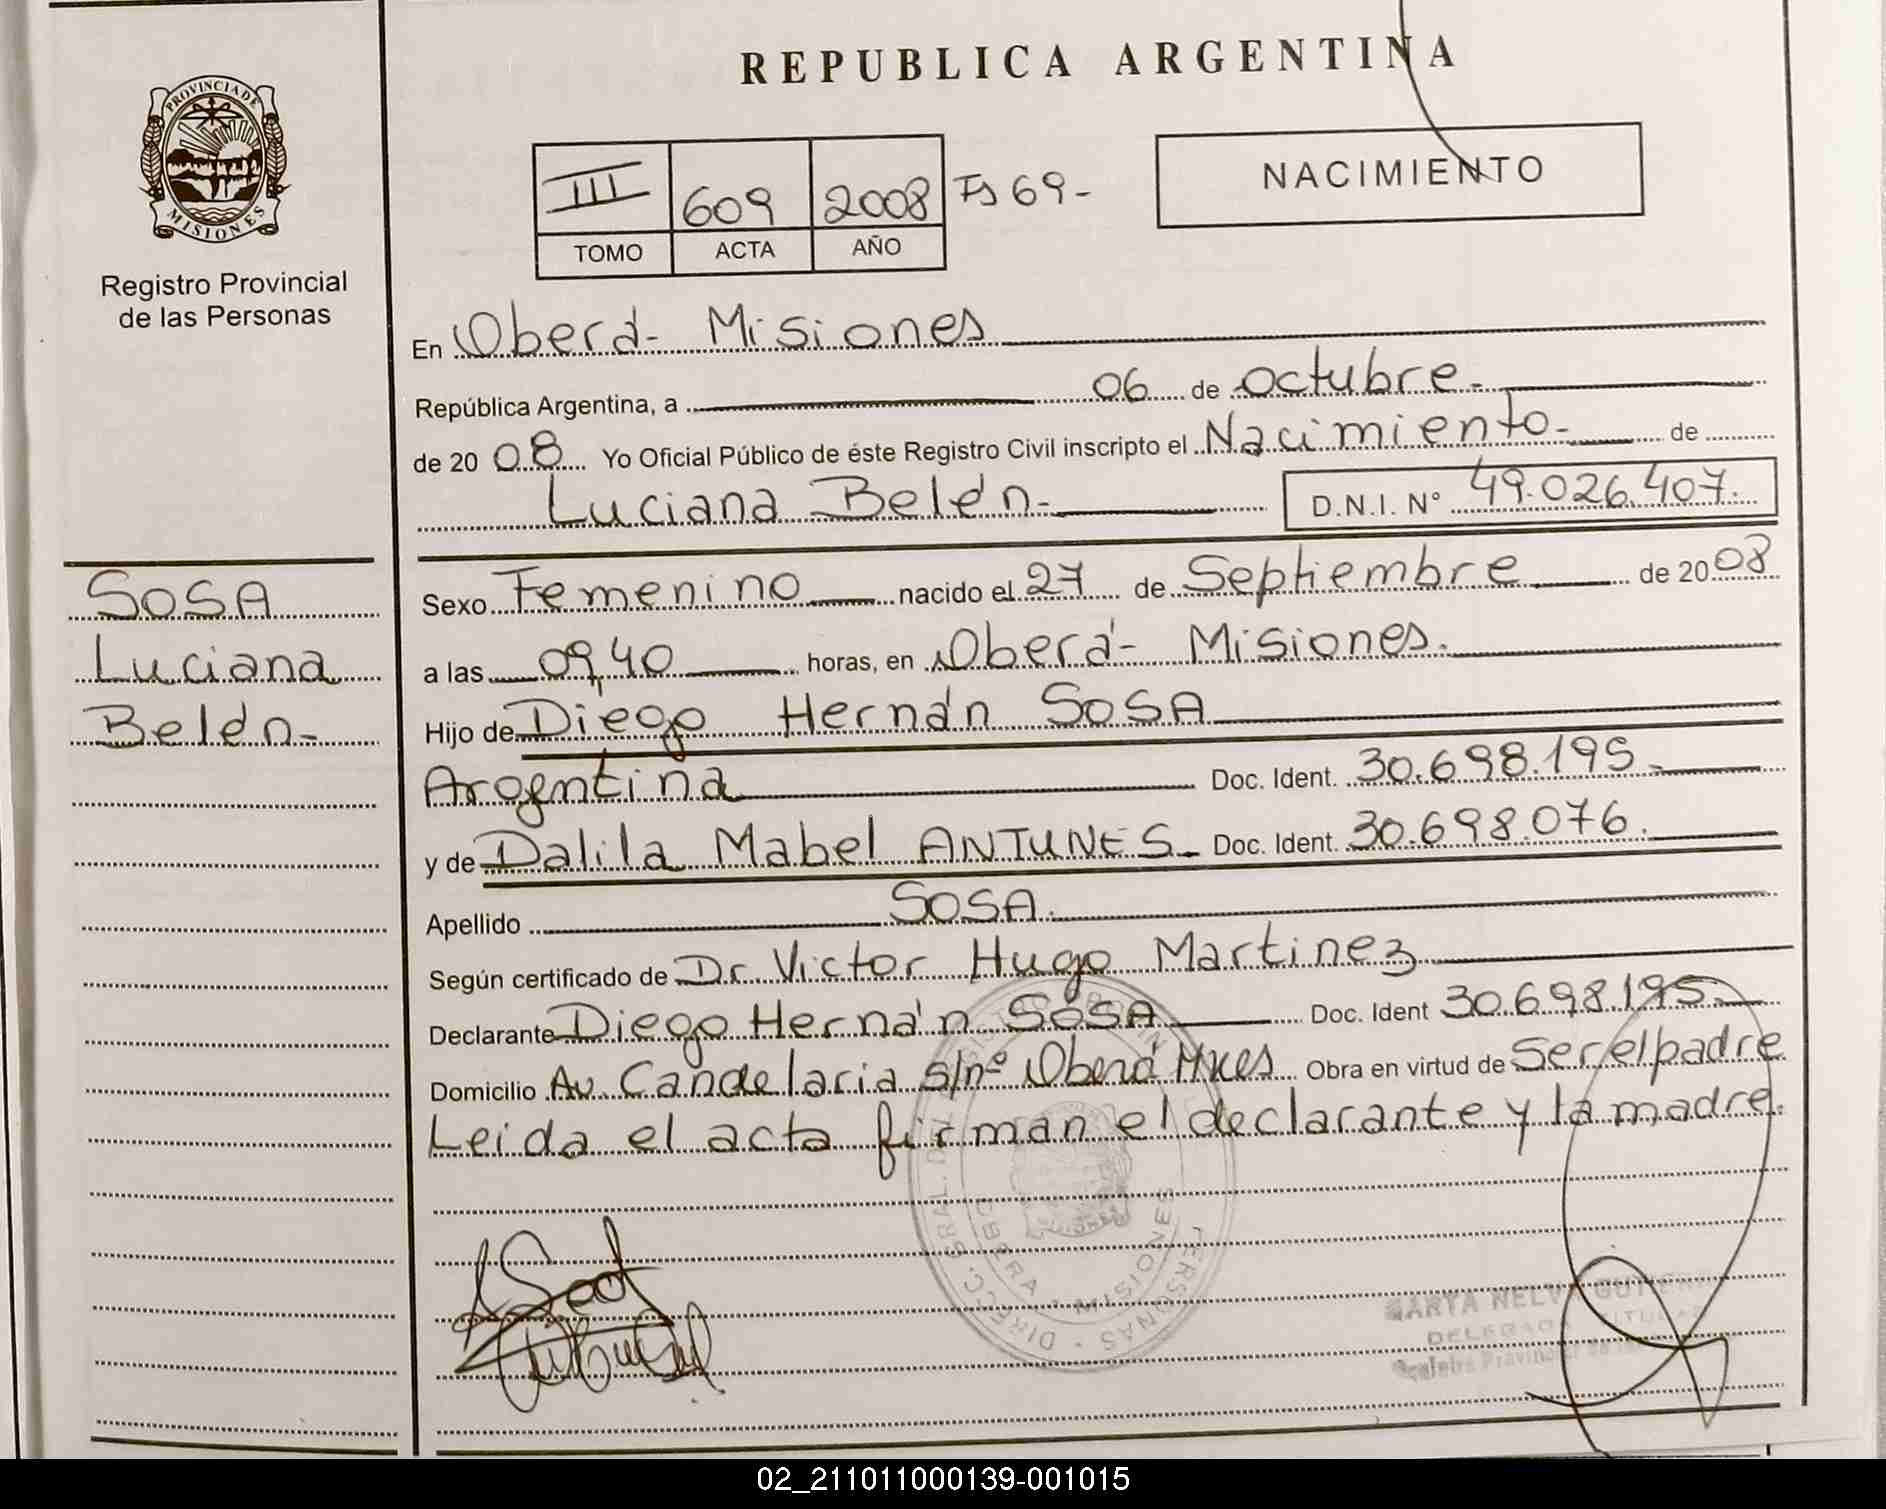 REPUBLICA ARGENTINA
PROVINCIA DE
MISIONES
Registro Provincial
de las Personas
III 609 2008 Fs 69-
TOMO ACTA AÑO
NACIMIENTO
En Oberá- Misiones
República Argentina, a 06 de octubre.-
de 20 08 Yo Oficial Público de éste Registro Civil inscripto el Nacimiento- de
Luciana Belén- D.N.I. N° 49.026.407.
SOSA
Luciana
Belén-
Sexo Femenino nacido el 27 de Septiembre de 2008
a las 09,40 horas, en Oberá- Misiones.
Hijo de Diego Hernán SOSA
Argentina Doc. Ident. 30.698.195.
y de Dalila Mabel ANTUNES- Doc. Ident. 30.698.076.
Apellido SOSA.
Según certificado de Dr. Victor Hugo Martinez
Declarante Diego Hernán SOSA Doc. Ident 30.698.195.
Domicilio Av. Candelaria s/nº Oberá Mnes Obra en virtud de Ser el padre
Leida el acta firman el declarante y la madre.
OBERA - MISIONES
DELEGADA TITULAR
02_211011000139-001015